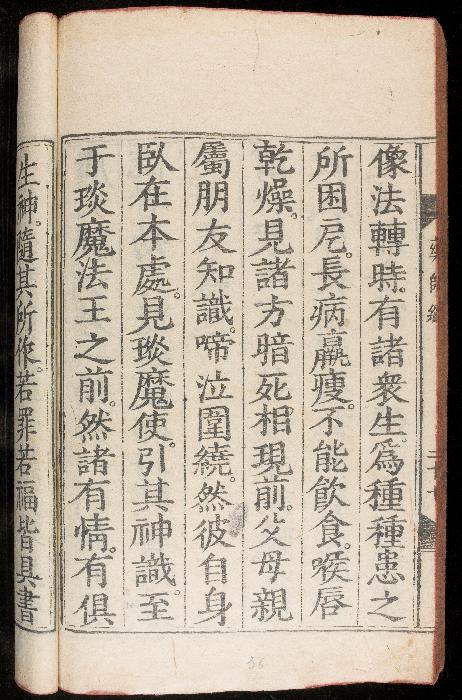 藥師經
二十七
像法轉時。有諸衆生。爲種種患之
所困戹。長病羸瘦。不能飮食。喉唇
乾燥。見諸方暗。死相現前。父母親
屬。朋友知識。啼泣圍繞。然彼自身。
臥在本處。見琰魔使。引其神識。至
于琰魔法王之前。然諸有情。有俱
生神。隨其所作。若罪若福。皆具書
36